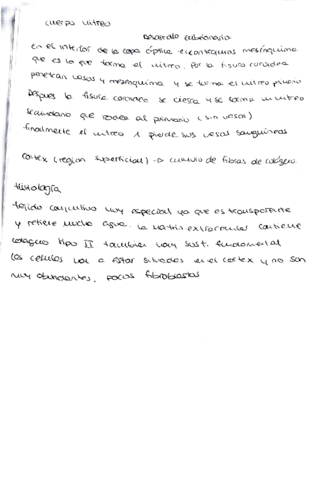 cuerpo vitreo
desarrollo embrionario
en el interior de la copa óptica encontramos mesénquima
que es lo que forma el vitreo. Por la fisura coroidea
penetran vasos y mesenquima y se forma el vitreo primario
Despues la fisura coroidea se cierra y se forma un vitreo
secundario que rodea al primario (sin vasos)
finalmente el vitreo 1 pierde sus vasos sanguineos
Cortex (region superficial) → cumulo de fibras de colágeno
Histología
tejido conjuntivo muy especial ya que es transparente
y retiene mucha agua. La matriz extracelular contiene
colageno tipo II tambien hay sust. fundamental
las celulas van a estar situadas en el cortex y no son
muy abundantes, pocos fibroblastos